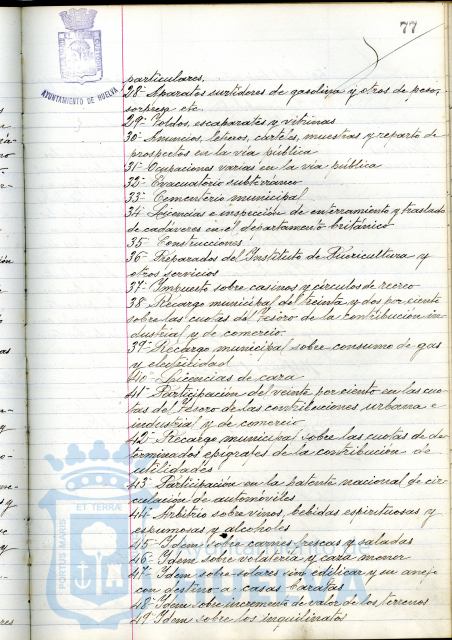 77
AYUNTAMIENTO DE HUELVA
particulares.
28- Aparatos surtidores de gasolina y otros de peso,
sorpresa etc.
29- Toldos, escaparates y vitrinas
30- Anuncios, letreros, carteles, muestras y reparto de
prospectos en la vía pública
31- Ocupaciones varias en la vía pública
32- Evacuatorio subterraneo
33- Cementerio municipal
34- Licencias e inspección de enterramiento y traslado
de cadáveres en el departamento británico
35- Construcciones
36- Preparados del Instituto de Puericultura y
otros servicios
37- Impuesto sobre casinos y círculos de recreo
38- Recargo municipal del treinta y dos por ciento
sobre las cuotas del Tesoro de la contribución in-
dustrial y de comercio.
39- Recargo municipal sobre consumo de gas
y electricidad
40- Licencias de caza
41- Participación del veinte por ciento en las cuo-
tas del Tesoro de las contribuciones urbana e
industrial y de comercio
42- Recargo municipal sobre las cuotas de de-
terminados epígrafes de la contribución de
utilidades
43- Participación en la patente nacional de cir-
culación de automóviles
44- Arbitrio sobre vinos, bebidas espirituosas y
espumosas y alcoholes
45- Idem sobre carnes frescas y saladas
46- Idem sobre volatería y caza menor
47- Idem sobre solares sin edificar y su anejo
con destino a casas baratas
48- Idem sobre incremento de valor de los terrenos
49- Idem sobre los inquilinatos
ET TERRÆ
PORTUS MARIS